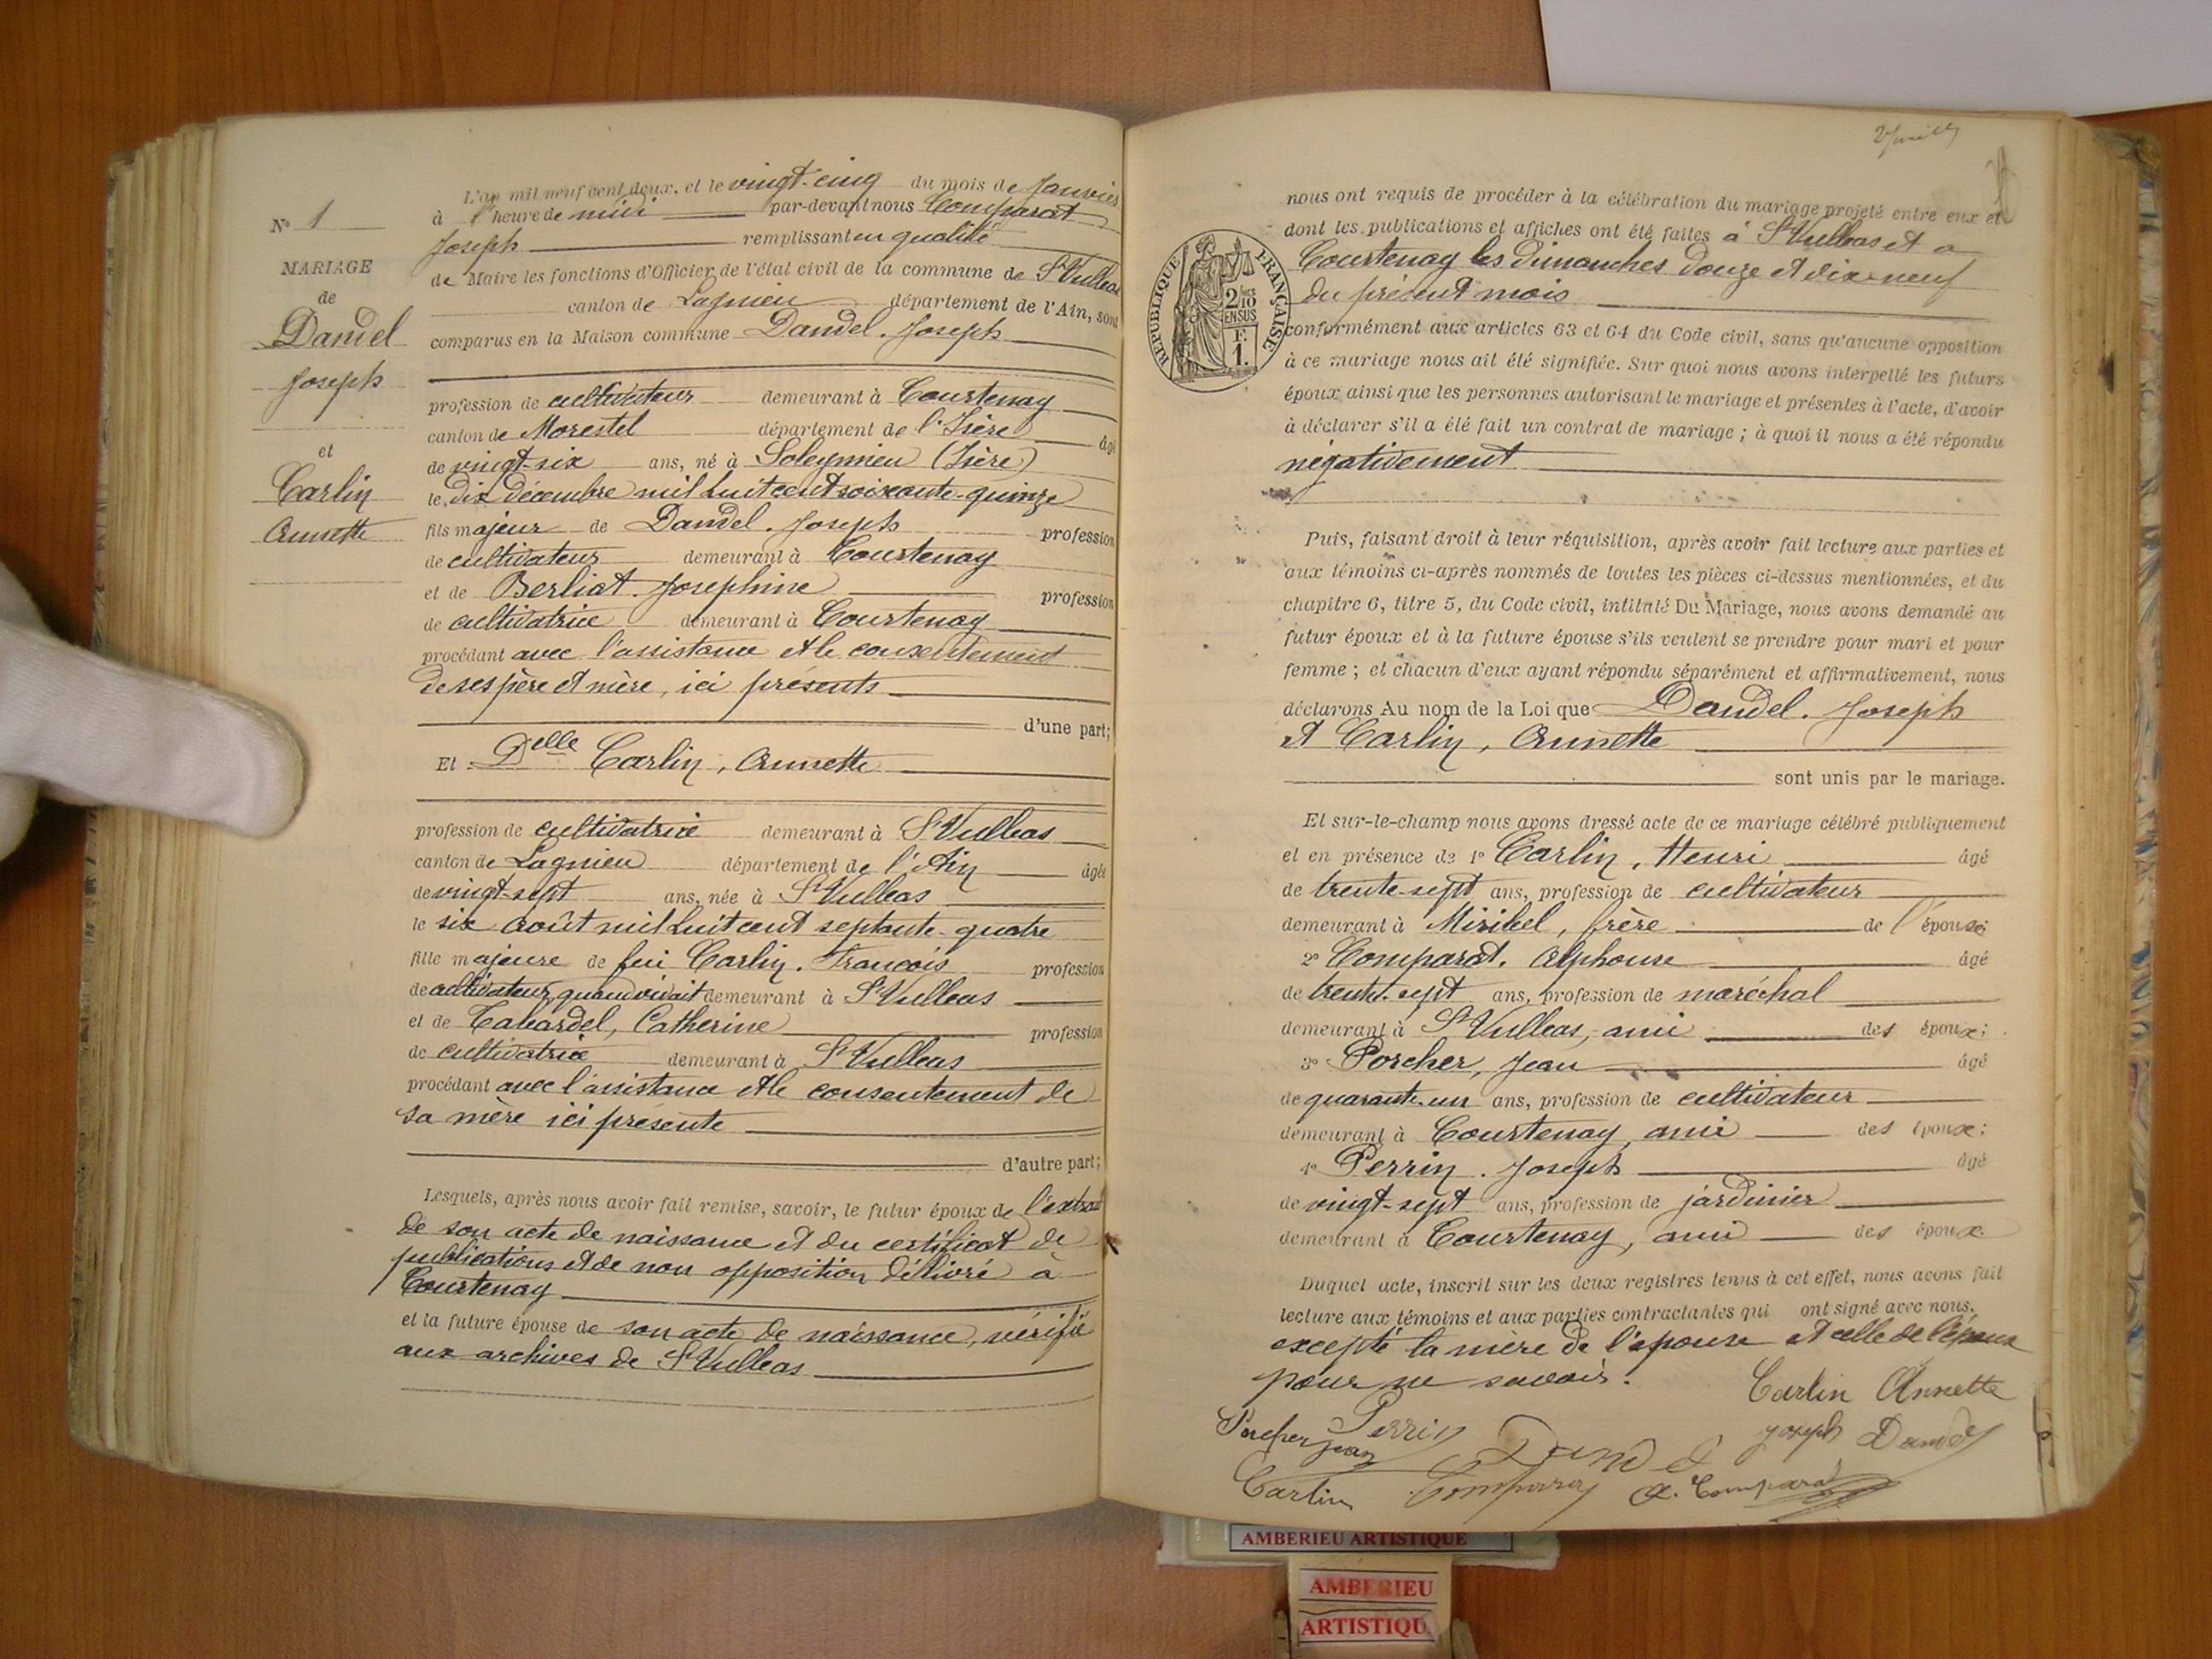 N° 1
MARIAGE
de
Dandel
Joseph
et
Carlin
Annette
L'an mil neuf cent deux, et le vingt-cinq du mois de Janvier
à l'heure de midi par-devant nous Comparat
Joseph remplissant en qualité
de Maire les fonctions d'Officier de l'état civil de la commune de St Vulbas
canton de Lagnieu département de l'Ain, sont
comparus en la Maison commune Dandel. Joseph
profession de cultivateur demeurant à Courtenay
canton de Morestel département de l'Isère âgé
de vingt-six ans, né à Soleymieu (Isère)
le dix décembre mil huit cent soixante-quinze
fils majeur de Dandel. Joseph profession
de cultivateur demeurant à Courtenay
et de Berliat. Joséphine profession
de cultivatrice demeurant à Courtenay
procédant avec l'assistance et le consentement
de ses père et mère, ici présents
d'une part;
Et Delle Carlin, Annette
profession de cultivatrice demeurant à St Vulbas
canton de Lagnieu département de l'Ain âgée
de vingt-sept ans, née à St Vulbas
le six août mil huit cent septante-quatre
fille majeure de feu Carlin. François profession
de cultivateur quand vivait demeurant à St Vulbas
et de Tabardel, Catherine profession
de cultivatrice demeurant à St Vulbas
procédant avec l'assistance et le consentement de
sa mère ici présente
d'autre part;
Lesquels, après nous avoir fait remise, savoir, le futur époux de l'extrait
de son acte de naissance et du certificat de
publications et de non opposition délivré à
Courtenay
et la future épouse de son acte de naissance, vérifié
aux archives de St Vulbas
nous ont requis de procéder à la célébration du mariage projeté entre eux et
dont les publications et affiches ont été faites à St Vulbas et à
Courtenay les dimanches douze et dix-neuf
du présent mois
RÉPUBLIQUE FRANÇAISE
2/10
EN SUS
F.
1.
conformément aux articles 63 et 64 du Code civil, sans qu'aucune opposition
à ce mariage nous ait été signifiée. Sur quoi nous avons interpellé les futurs
époux ainsi que les personnes autorisant le mariage et présentes à l'acte, d'avoir
à déclarer s'il a été fait un contrat de mariage ; à quoi il nous a été répondu
négativement
Puis, faisant droit à leur réquisition, après avoir fait lecture aux parties et
aux témoins ci-après nommés de toutes les pièces ci-dessus mentionnées, et du
chapitre 6, titre 5, du Code civil, intitulé Du Mariage, nous avons demandé au
futur époux et à la future épouse s'ils veulent se prendre pour mari et pour
femme ; et chacun d'eux ayant répondu séparément et affirmativement, nous
déclarons Au nom de la Loi que Dandel. Joseph
et Carlin, Annette
sont unis par le mariage.
Et sur-le-champ nous avons dressé acte de ce mariage célébré publiquement
et en présence de 1° Carlin, Henri âgé
de trente-sept ans, profession de cultivateur
demeurant à Miribel, frère de l'épouse;
2° Comparat. Alphonse âgé
de trente-sept ans, profession de maréchal
demeurant à St Vulbas, ami des époux;
3° Porcher, Jean âgé
de quarante-un ans, profession de cultivateur
demeurant à Courtenay, ami des époux;
4° Perrin. Joseph âgé
de vingt-sept ans, profession de jardinier
demeurant à Courtenay, ami des époux.
Duquel acte, inscrit sur les deux registres tenus à cet effet, nous avons fait
lecture aux témoins et aux parties contractantes qui ont signé avec nous,
excepté la mère de l'épouse et celle de l'époux
pour ne savoir.
Carlin Annette
Porcher Jean
Perrin
Dandel
Joseph Dandel
Carlin
Comparat
A. Comparat
AMBERIEU ARTISTIQUE
AMBERIEU
ARTISTIQU